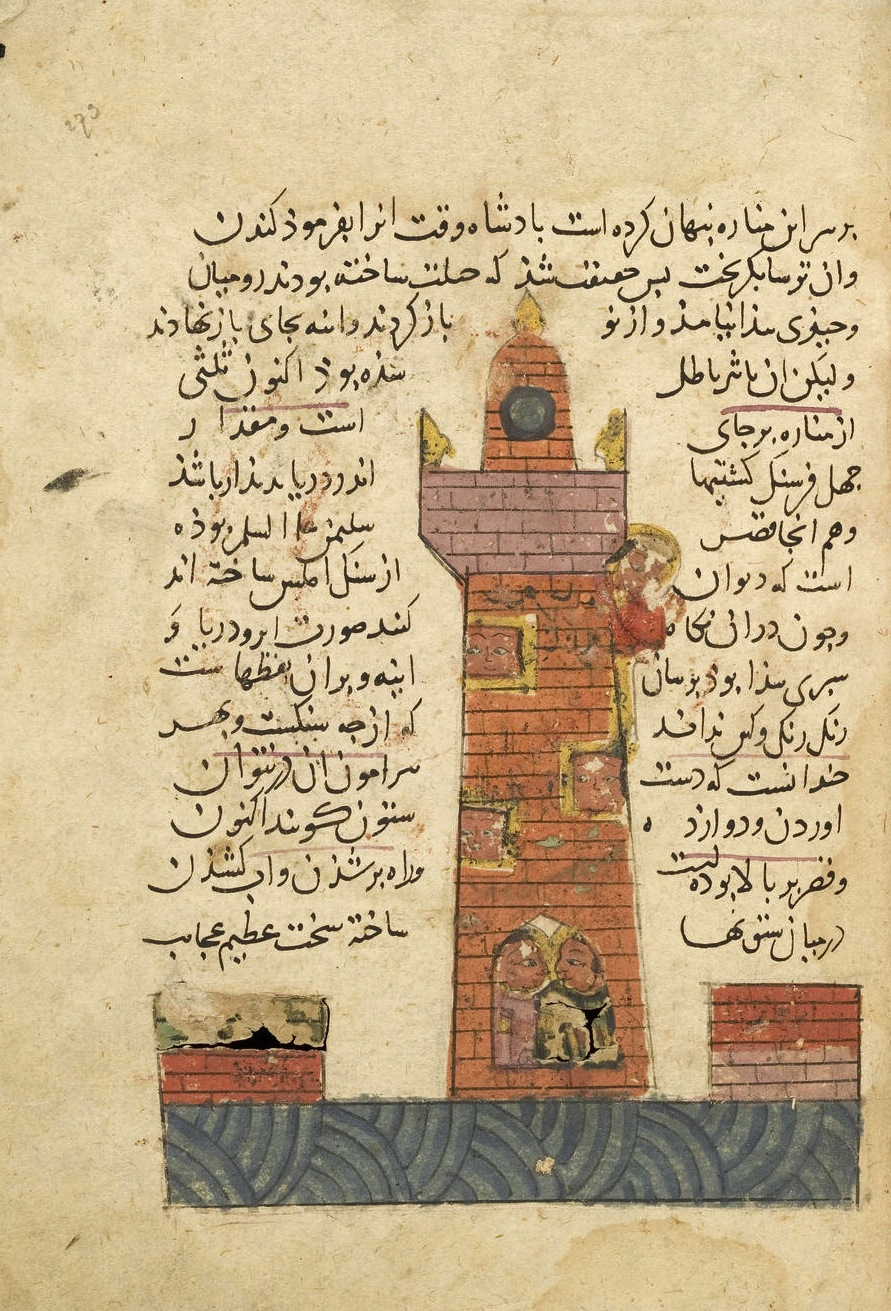 بر سر این مناره پنهان کرده است بادشاه وقت انرا بفرموذ کندن
وان ترسا بکریخت بس حقیقت شذ که حیلت ساخته بودند رومیان
وجیزی بیذا نیامذ و از نو باز کردند و اینه بجای باز نهادند
ولیکن ان باثر باطل شذه بوذ اکنون ثلثی
از مناره بر جای است ومقدار
جهل فرسنک کشتیها اندر دریا بدیذار باشذ
وهم انجا قصر سلیمن علیه السلم بوذه
است که دیوان از سنک املس ساخته اند
وجون دران نکاه کنند صورت ابر ودریا و
سبزی بیذا بوذ برسان اینه وبران نقطهاست
رنک رنک وکس نداند که از جه سنکست وبهر
جندانست که دست بیرامون ان در نتوان
اوردن ودوازده ستون کویند اکنون
وقصر بر بالا بوذه است وراه بر شذن واب کشذن
در میان ستونها ساخته سخت عظیم عجایب